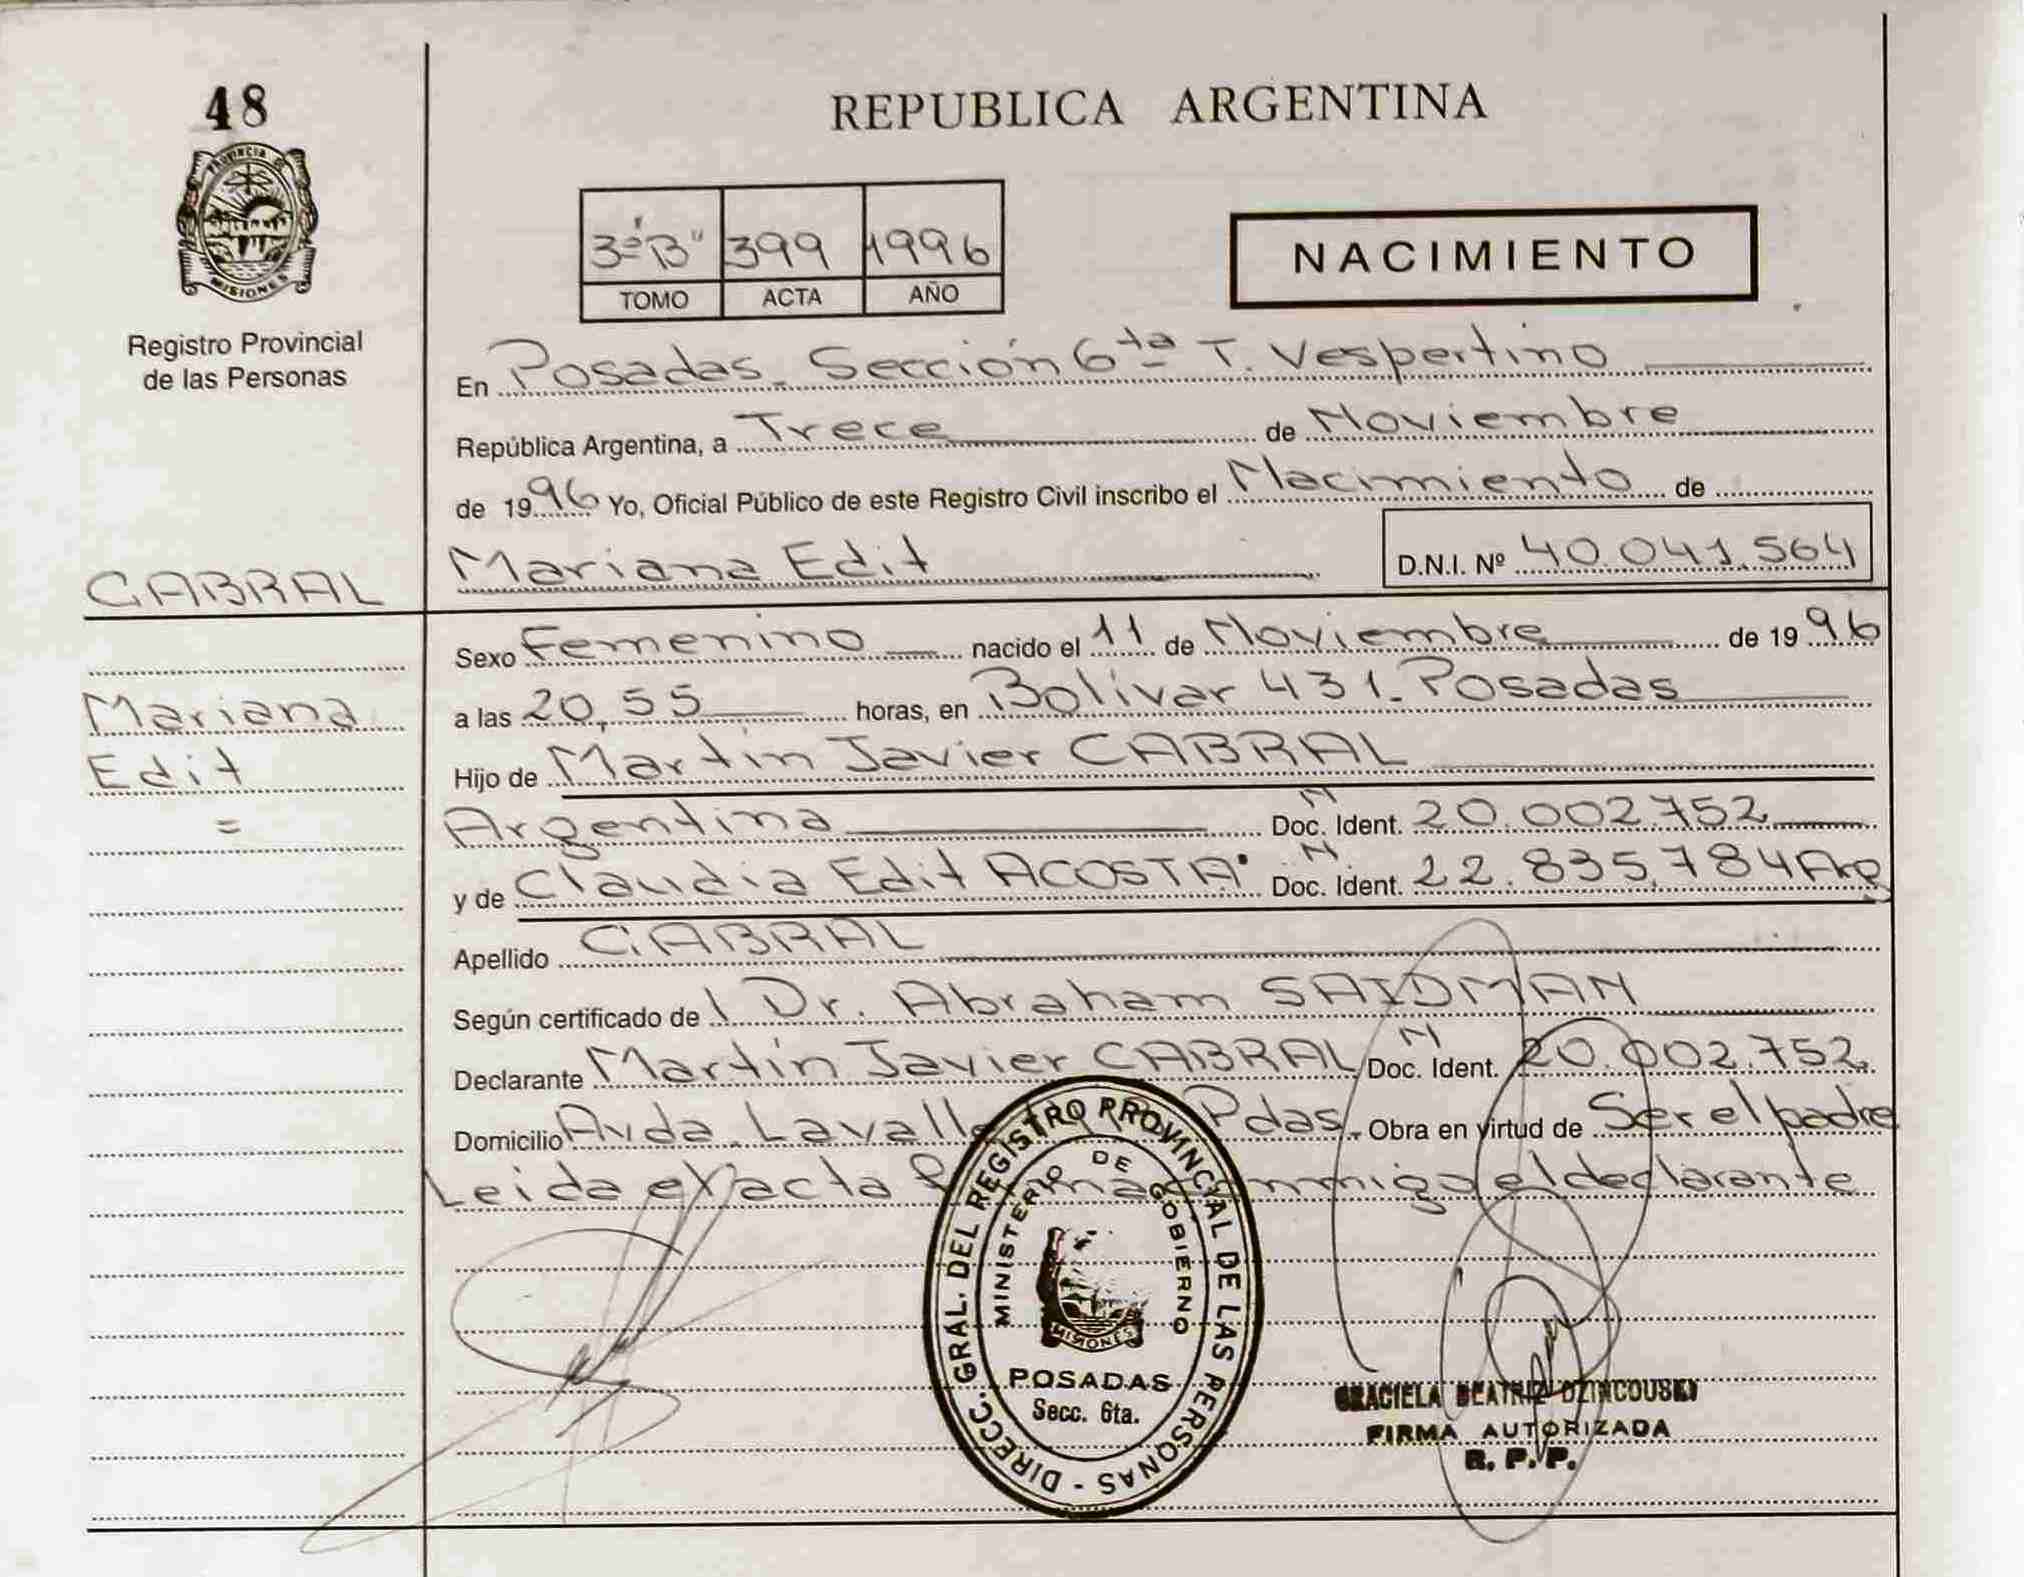 48
PROVINCIA DE
MISIONES
Registro Provincial
de las Personas
CABRAL
Mariana
Edit
=
REPUBLICA ARGENTINA
3º "B" 399 1996
TOMO ACTA AÑO
NACIMIENTO
En Posadas. Sección 6ta T. Vespertino
República Argentina, a Trece de Noviembre
de 1996 Yo, Oficial Público de este Registro Civil inscribo el Nacimiento de
Mariana Edit D.N.I. Nº 40.041.564
Sexo Femenino nacido el 11 de Noviembre de 1996
a las 20,55 horas, en Bolívar 431. Posadas
Hijo de Martín Javier CABRAL
Argentina Doc. N Ident. 20.002.752
y de Claudia Edit ACOSTA Doc. N. Ident. 22.835.784 Arg
Apellido CABRAL
Según certificado de Dr. Abraham SAIDMAN
Declarante Martín Javier CABRAL Doc. N Ident. 20.002.752
Domicilio Avda. Lavalle Pdas. Obra en virtud de Ser el padre
Leída exacta el declarante
DIRECC. GRAL. DEL REGISTRO PROVINCIAL DE LAS PERSONAS -
MINISTERIO DE GOBIERNO
MISIONES
POSADAS
Secc. 6ta.
GRACIELA BEATRIZ
FIRMA AUTORIZADA
R. P. P.